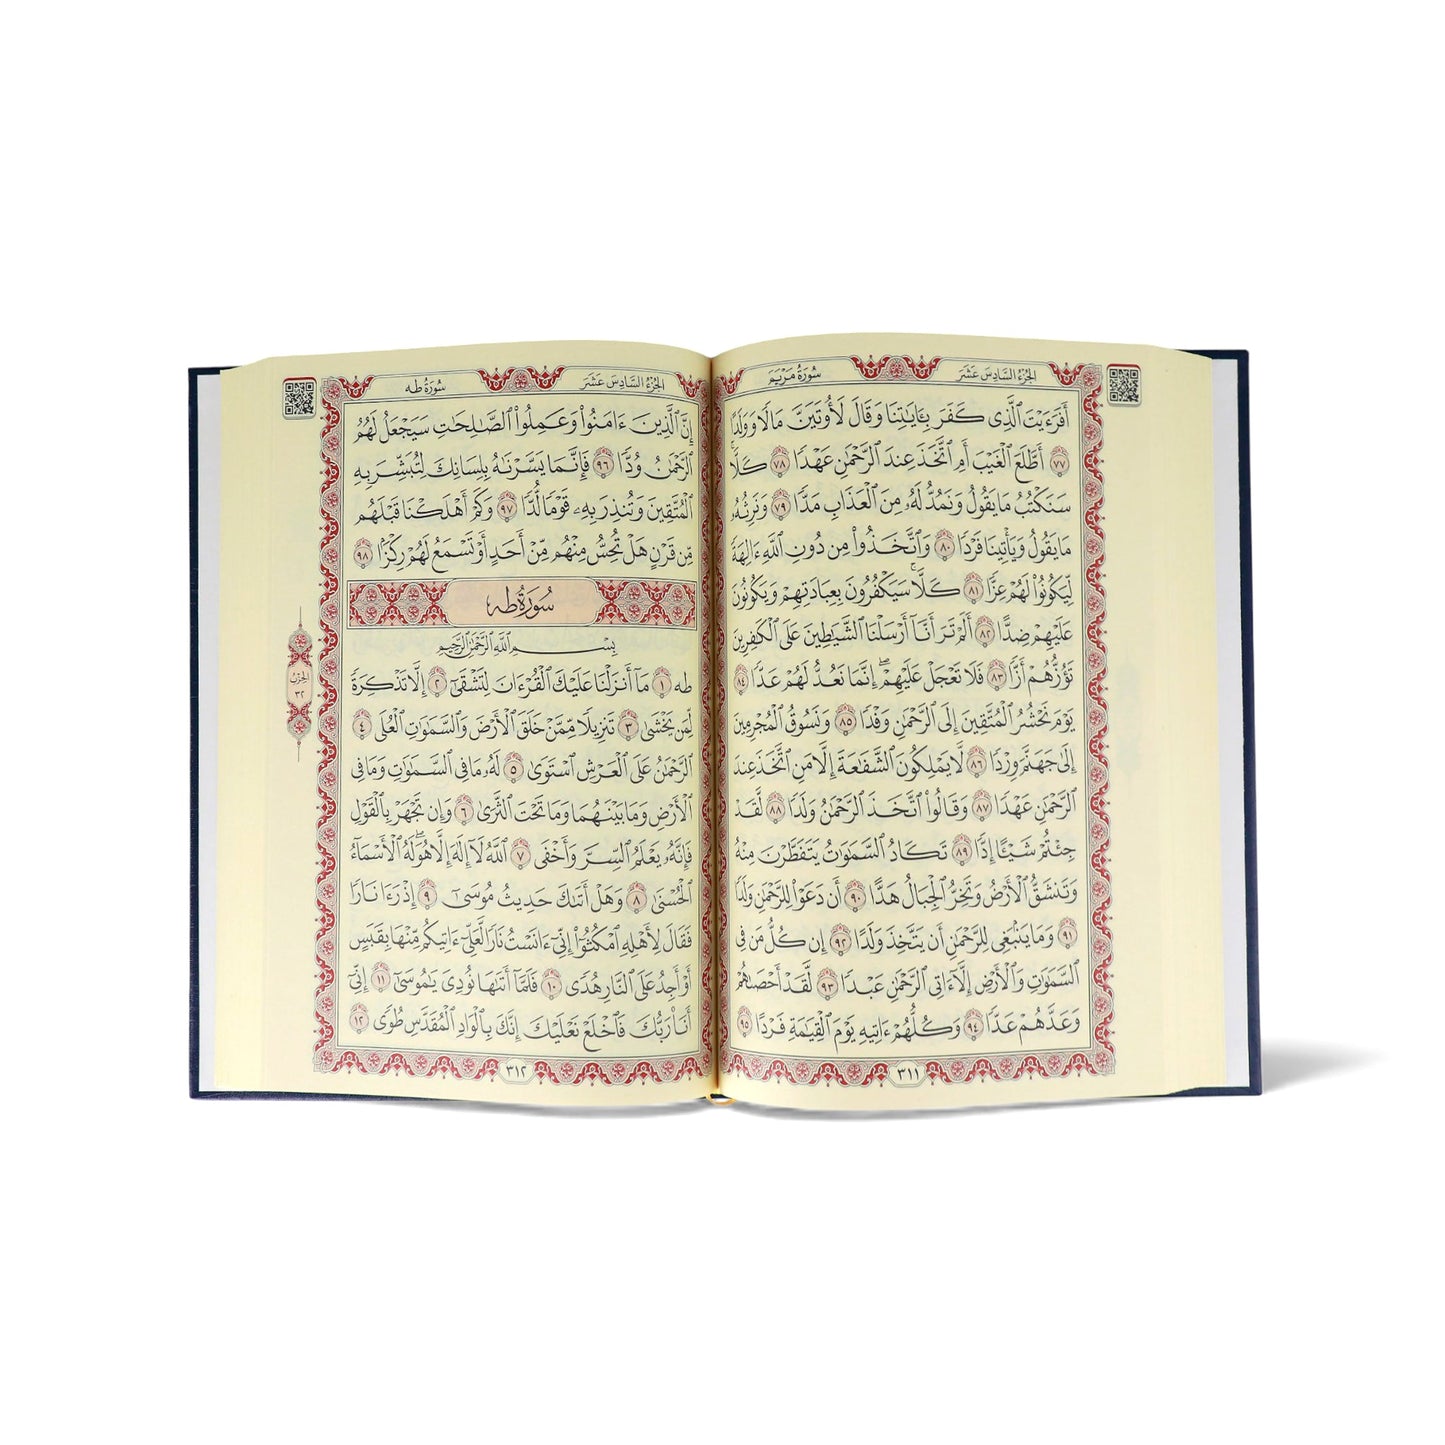 سُورَةُ مَرْيَم
الجُزْءُ السَّادِسَ عَشَرَ
أَفَرَءَيْتَ ٱلَّذِى كَفَرَ بِـَٔايَٰتِنَا وَقَالَ لَأُوتَيَنَّ مَالًا وَوَلَدًا
٧٧ أَطَّلَعَ ٱلْغَيْبَ أَمِ ٱتَّخَذَ عِندَ ٱلرَّحْمَٰنِ عَهْدًا ٧٨ كَلَّا ۚ
سَنَكْتُبُ مَا يَقُولُ وَنَمُدُّ لَهُۥ مِنَ ٱلْعَذَابِ مَدًّا ٧٩ وَنَرِثُهُۥ
مَا يَقُولُ وَيَأْتِينَا فَرْدًا ٨٠ وَٱتَّخَذُوا۟ مِن دُونِ ٱللَّهِ ءَالِهَةً
لِّيَكُونُوا۟ لَهُمْ عِزًّا ٨١ كَلَّا ۚ سَيَكْفُرُونَ بِعِبَادَتِهِمْ وَيَكُونُونَ
عَلَيْهِمْ ضِدًّا ٨٢ أَلَمْ تَرَ أَنَّآ أَرْسَلْنَا ٱلشَّيَٰطِينَ عَلَى ٱلْكَٰفِرِينَ
تَؤُزُّهُمْ أَزًّا ٨٣ فَلَا تَعْجَلْ عَلَيْهِمْ ۖ إِنَّمَا نَعُدُّ لَهُمْ عَدًّا ٨٤
يَوْمَ نَحْشُرُ ٱلْمُتَّقِينَ إِلَى ٱلرَّحْمَٰنِ وَفْدًا ٨٥ وَنَسُوقُ ٱلْمُجْرِمِينَ
إِلَىٰ جَهَنَّمَ وِرْدًا ٨٦ لَّا يَمْلِكُونَ ٱلشَّفَٰعَةَ إِلَّا مَنِ ٱتَّخَذَ عِندَ
ٱلرَّحْمَٰنِ عَهْدًا ٨٧ وَقَالُوا۟ ٱتَّخَذَ ٱلرَّحْمَٰنُ وَلَدًا ٨٨ لَّقَدْ
جِئْتُمْ شَيْـًٔا إِدًّا ٨٩ تَكَادُ ٱلسَّمَٰوَٰتُ يَتَفَطَّرْنَ مِنْهُ
وَتَنشَقُّ ٱلْأَرْضُ وَتَخِرُّ ٱلْجِبَالُ هَدًّا ٩٠ أَن دَعَوْا۟ لِلرَّحْمَٰنِ وَلَدًا
٩١ وَمَا يَنۢبَغِى لِلرَّحْمَٰنِ أَن يَتَّخِذَ وَلَدًا ٩٢ إِن كُلُّ مَن فِى
ٱلسَّمَٰوَٰتِ وَٱلْأَرْضِ إِلَّآ ءَاتِى ٱلرَّحْمَٰنِ عَبْدًا ٩٣ لَّقَدْ أَحْصَىٰهُمْ
وَعَدَّهُمْ عَدًّا ٩٤ وَكُلُّهُمْ ءَاتِيهِ يَوْمَ ٱلْقِيَٰمَةِ فَرْدًا ٩٥
٣١١
سُورَةُ طه
الجُزْءُ السَّادِسَ عَشَرَ
إِنَّ ٱلَّذِينَ ءَامَنُوا۟ وَعَمِلُوا۟ ٱلصَّٰلِحَٰتِ سَيَجْعَلُ لَهُمُ
ٱلرَّحْمَٰنُ وُدًّا ٩٦ فَإِنَّمَا يَسَّرْنَٰهُ بِلِسَانِكَ لِتُبَشِّرَ بِهِ
ٱلْمُتَّقِينَ وَتُنذِرَ بِهِۦ قَوْمًا لُّدًّا ٩٧ وَكَمْ أَهْلَكْنَا قَبْلَهُم
مِّن قَرْنٍ هَلْ تُحِسُّ مِنْهُم مِّنْ أَحَدٍ أَوْ تَسْمَعُ لَهُمْ رِكْزًۢا ٩٨
سُورَةُ طه
بِسْمِ ٱللَّهِ ٱلرَّحْمَٰنِ ٱلرَّحِيمِ
طه ١ مَآ أَنزَلْنَا عَلَيْكَ ٱلْقُرْءَانَ لِتَشْقَىٰٓ ٢ إِلَّا تَذْكِرَةً
لِّمَن يَخْشَىٰ ٣ تَنزِيلًا مِّمَّنْ خَلَقَ ٱلْأَرْضَ وَٱلسَّمَٰوَٰتِ ٱلْعُلَى ٤
ٱلرَّحْمَٰنُ عَلَى ٱلْعَرْشِ ٱسْتَوَىٰ ٥ لَهُۥ مَا فِى ٱلسَّمَٰوَٰتِ وَمَا فِى
ٱلْأَرْضِ وَمَا بَيْنَهُمَا وَمَا تَحْتَ ٱلثَّرَىٰ ٦ وَإِن تَجْهَرْ بِٱلْقَوْلِ
فَإِنَّهُۥ يَعْلَمُ ٱلسِّرَّ وَأَخْفَى ٧ ٱللَّهُ لَآ إِلَٰهَ إِلَّا هُوَ ۖ لَهُ ٱلْأَسْمَآءُ
ٱلْحُسْنَىٰ ٨ وَهَلْ أَتَىٰكَ حَدِيثُ مُوسَىٰٓ ٩ إِذْ رَءَا نَارًا
فَقَالَ لِأَهْلِهِ ٱمْكُثُوٓا۟ إِنِّىٓ ءَانَسْتُ نَارًا لَّعَلِّىٓ ءَاتِيكُم مِّنْهَا بِقَبَسٍ
أَوْ أَجِدُ عَلَى ٱلنَّارِ هُدًى ١٠ فَلَمَّآ أَتَىٰهَا نُودِىَ يَٰمُوسَىٰٓ ١١ إِنِّىٓ
أَنَا۠ رَبُّكَ فَٱخْلَعْ نَعْلَيْكَ ۖ إِنَّكَ بِٱلْوَادِ ٱلْمُقَدَّسِ طُوًى ١٢
٣١٢
الحِزْبُ
٣٢